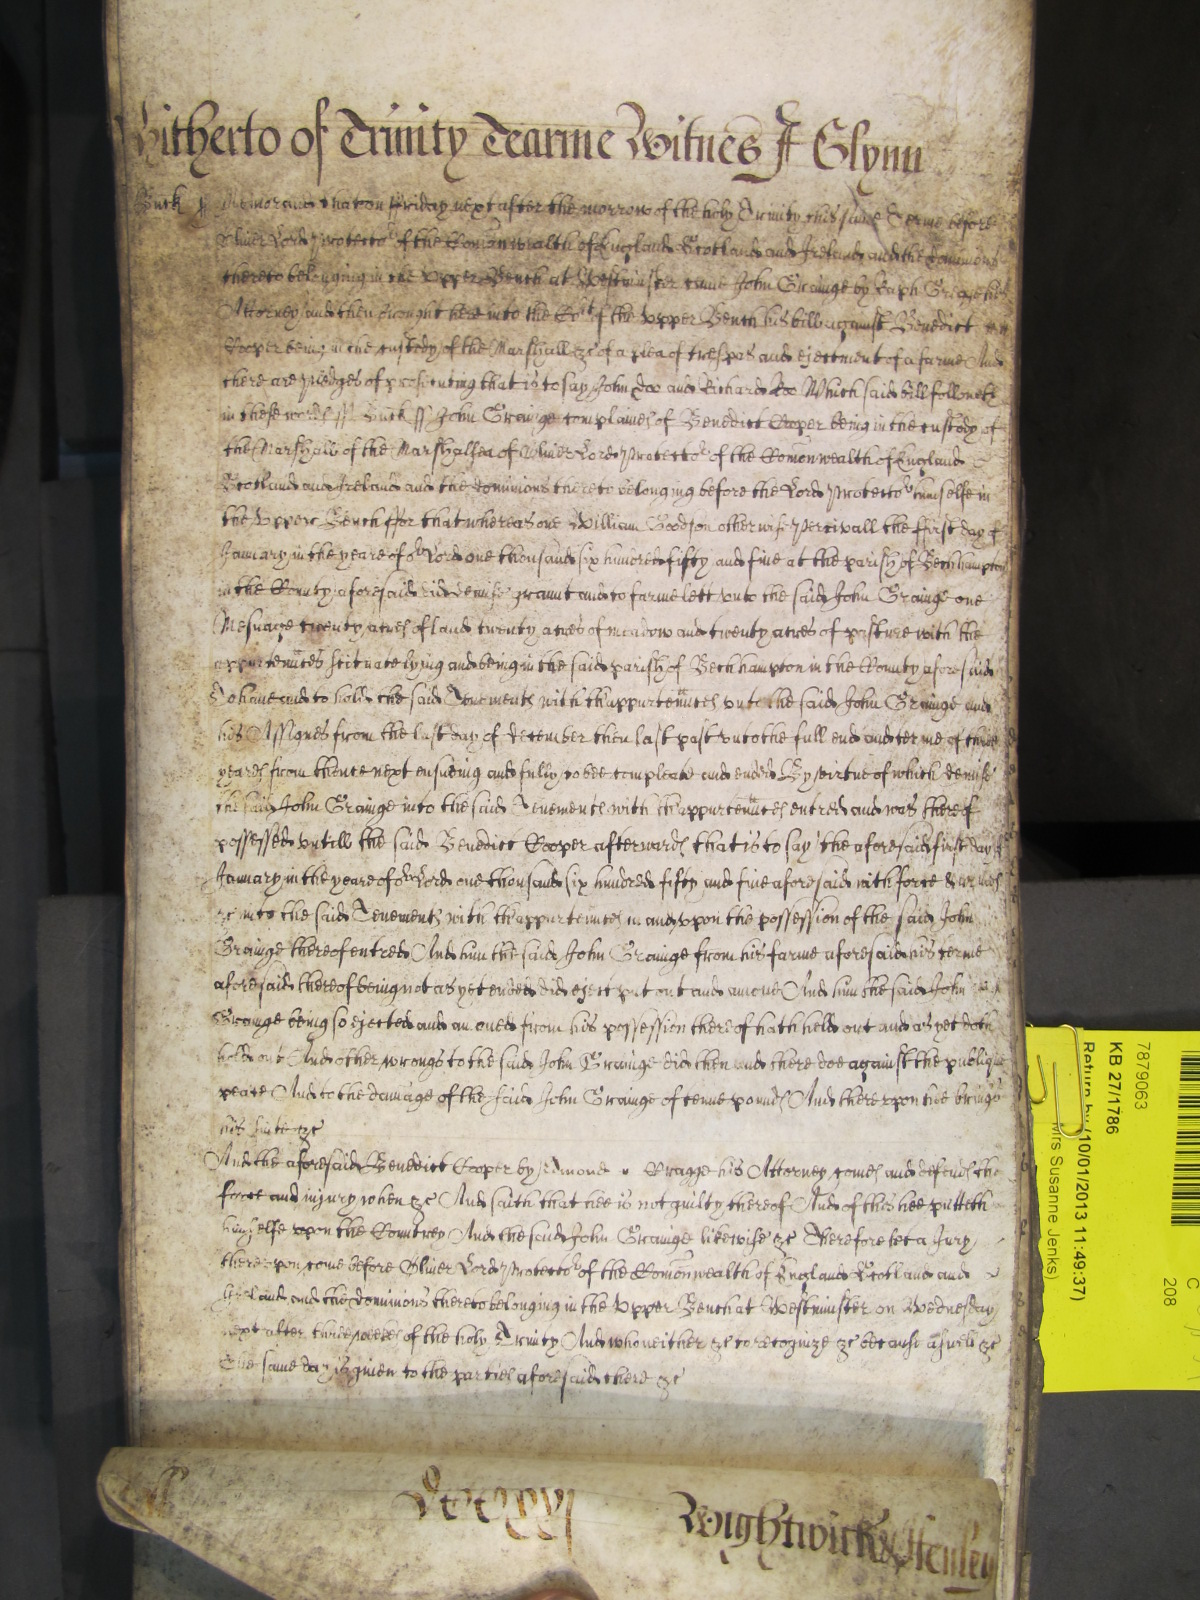 Hitherto of Trinity Tearme Witnes J Glynn
Buck ſſ Memorand that on ffriday next after the morrow of the holy Trinity this same Terme before
Oliver Lord Protector of the Comonwealth of England Scotland and Ireland and the dominions
thereto belonging in the Upper Bench at Westminster came John Grainge by Raph his
Attorney and then brought here into the Cort of the Upper Bench his bill against Benedict
Cooper being in the custody of the Marshall &c of a plea of trespas and ejectment of a farme And
there are pledges of prosecuting that is to say John Doe and Richard Roe Which said bill followeth
in these words ſſ Buck ſſ John Grainge complaines of Benedict Cooper being in the custody of
the Marshall of the Marshalsea of Oliver Lord Protector of the Comonwealth of England
Scotland and Ireland and the dominions thereto belonging before the Lord Protector himselfe in
the Upper Bench ffor that whereas one William Goodson otherwise Percivall the ffirst day of
January in the yeare of or Lord one thousand six hundred fifty and fiue at the parish of Bechhampton
in the County aforesaid did demise graunt and to farme lett vnto the said John Grainge one
Mesuage twenty acres of land twenty acres of meadow and twenty acres of pasture with the
appurtennces scituate lying and being in the said parish of Bechhampton in the County aforesaid
To haue and to hold the said Tenements with thappurtennces vnto the said John Grainge and
his Assignes from the last day of december then last past vnto the full end and terme of three
yeares from thence next ensueing and fully to bee compleat and ended By virtue of which demise
the said John Grainge into the said Tenements with thappurtennces entred and was thereof
possessed vntill the said Benedict Cooper afterwards that is to say the aforesaid first day of
January in the yeare of or Lord one thousand six hundred fifty and fiue aforesaid with force & armes
&c into the said Tenements with thappurtennces in and vpon the possession of the said John
Grainge thereof entred And him the said John Grainge from his farme aforesaid his terme
aforesaid thereof being not as yet ended did eject put out and amoue And him the said John
Grainge being so ejected and amoued from his possession thereof hath held out and as yet doth
hold out And other wrongs to the said John Grainge did then and there doe against the publique
peace And to the damage of the said John Grainge of tenne pounds And therevpon hee brings
his suite &c
And the aforesaid Benedict Cooper by Edmond Bragge his Attorney comes and defends the
force and injury when &c And saith that hee is not guilty thereof And of this hee putteth
himselfe vpon the Countrey And the said John Grainge likewise &c Therefore let a Jury
therevpon come before Oliver Lord Protector of the Comonwealth of England Scotland and
Ireland and the dominions thereto belonging in the Upper Bench at Westminster on Wednesday
next after three weekes of the holy Trinity And who neither &c to recognize &c because aswell &c
The same day is giuen to the parties aforesaid there &c
Wightwick & Henley
7879063
KB 27/1786
Return by (10/01/2013 11:49:37)
Mrs Susanne Jenks)
C
208